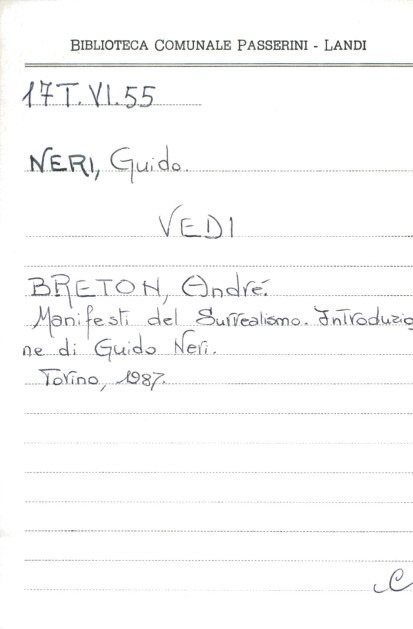 BIBLIOTECA COMUNALE PASSERINI - LANDI
17T.VI.55
NERI, Guido.
VEDI
BRETON, André.
Manifesti del Surrealismo. Introduzio
ne di Guido Neri.
Torino, 1987.
C